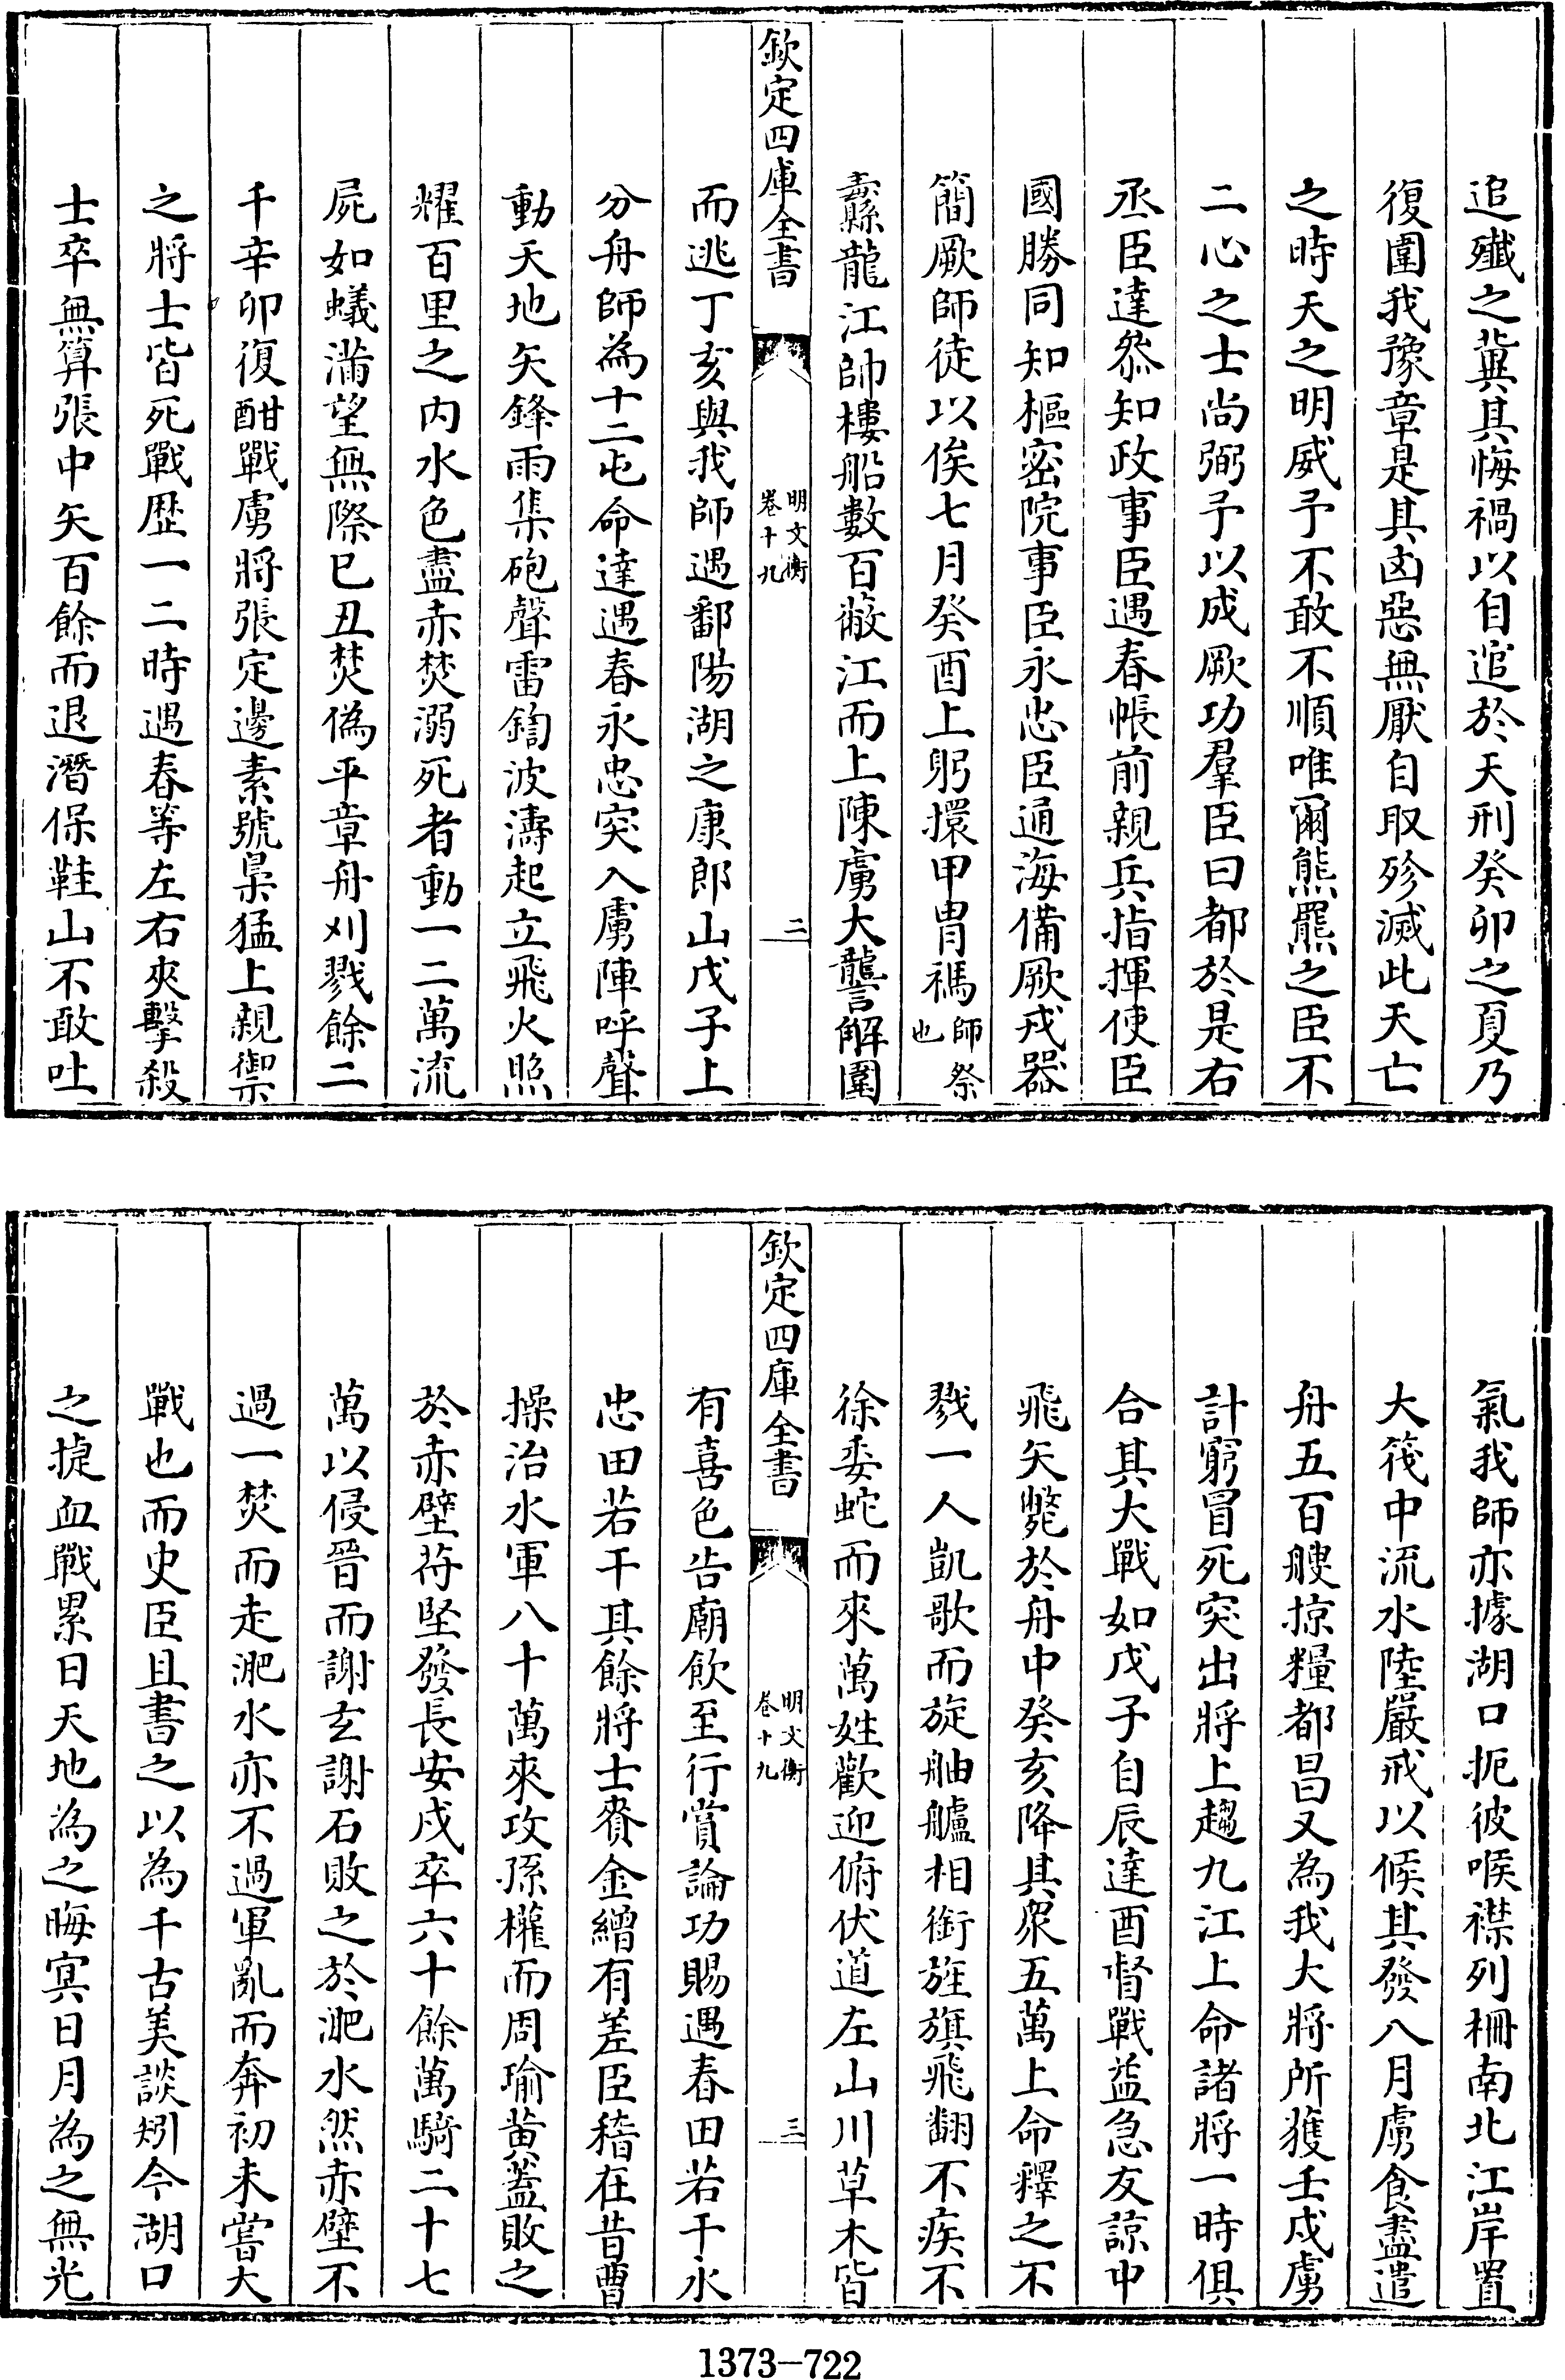 追殲之冀其悔禍以自逭於天刑癸卯之夏乃
復圍我豫章是其凶惡無厭自取殄滅此天亡
之時天之明威予不敢不順唯爾熊羆之臣不
二心之士尚弼予以成厥功羣臣曰都於是右
丞臣達叅知政事臣遇春帳前親兵指揮使臣
國勝同知樞密院事臣永忠臣通海備厥戎器
簡厥師徒以俟七月癸酉上躬擐甲胄禡師祭也
纛龍江帥樓船數百蔽江而上陳虜大讋解圍
欽定四庫全書
明文衡
卷十九
二
而逃丁亥與我師遇鄱陽湖之康郎山戊子上
分舟師為十二屯命達遇春永忠突入虜陣呼聲
動天地矢鋒雨集砲聲雷鍧波濤起立飛火照
耀百里之内水色盡赤焚溺死者動一二萬流
屍如蟻滿望無際已丑焚偽平章舟刈戮餘二
千辛卯復酣戰虜將張定邊素號梟猛上親禦
之將士皆死戰歴一二時遇春等左右夾擊殺
士卒無算張中矢百餘而退潛保鞋山不敢吐
氣我師亦據湖口扼彼喉襟列柵南北江岸置
大筏中流水陸嚴戒以候其發八月虜食盡遣
舟五百艘掠糧都昌又為我大將所獲壬戌虜
計窮冒死突出將上趨九江上命諸將一時俱
合其大戰如戊子自辰達酉督戰益急友諒中
飛矢斃於舟中癸亥降其衆五萬上命釋之不
戮一人凱歌而旋舳艫相銜旌旗飛翻不疾不
徐委蛇而來萬姓歡迎俯伏道左山川草木皆
欽定四庫全書
明文衡
卷十九
三
有喜色告廟飲至行賞論功賜遇春田若干永
忠田若干其餘將士賚金繒有差臣稽在昔曹
操治水軍八十萬來攻孫權而周瑜黄蓋敗之
於赤壁苻堅發長安戍卒六十餘萬騎二十七
萬以侵晉而謝玄謝石敗之於淝水然赤壁不
過一焚而走淝水亦不過軍亂而奔初未嘗大
戰也而史臣且書之以為千古美談矧今湖口
之捷血戰累日天地為之晦冥日月為之無光
1373-722